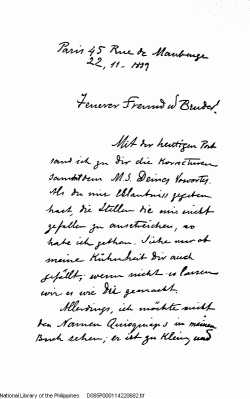 Paris 45 Rue de Maubeuge
22, 11 - 1889
Teuerer Freund u Bruder!
Mit der heutigen Post
sand ich zu dir die Korrecturen
sammt dem M.S. Deines Vorwortes.
Als du mir Erlaubniss gegeben
hast, die Stellen die mir nicht
gefallen zu ausstreichen, so
habe ich gethan. Siehe nur ob
meine Kühnheit dir auch
gefällt; wenn nicht so lassen
wir es wie du gemacht.
Allerdings, ich möchte nicht
den Namen Quioquiap in meinem
Buch sehen; er ist zu klein und
National Library of the Philippines